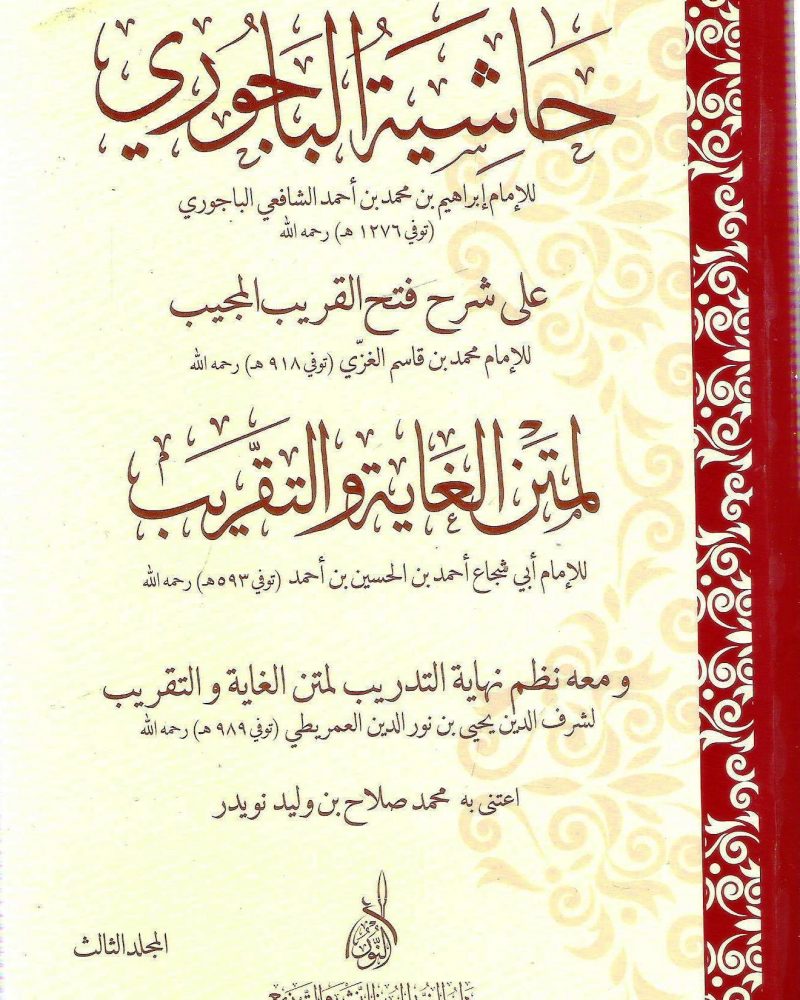 حاشية الباجوري
للإمام إبراهيم بن محمد بن أحمد الشافعي الباجوري
(توفي ١٢٧٦ هـ) رحمه الله
على شرح فتح القريب المجيب
للإمام محمد بن قاسم الغزّي (توفي ٩١٨ هـ) رحمه الله
لمتن الغاية والتقريب
للإمام أبي شجاع أحمد بن الحسين بن أحمد (توفي ٥٩٣ هـ) رحمه الله
و معه نظم نهاية التدريب لمتن الغاية و التقريب
لشرف الدين يحيى بن نور الدين العمريطي (توفي ٩٨٩ هـ) رحمه الله
اعتنى به محمد صلاح بن وليد نويدر
النور
المجلد الثالث